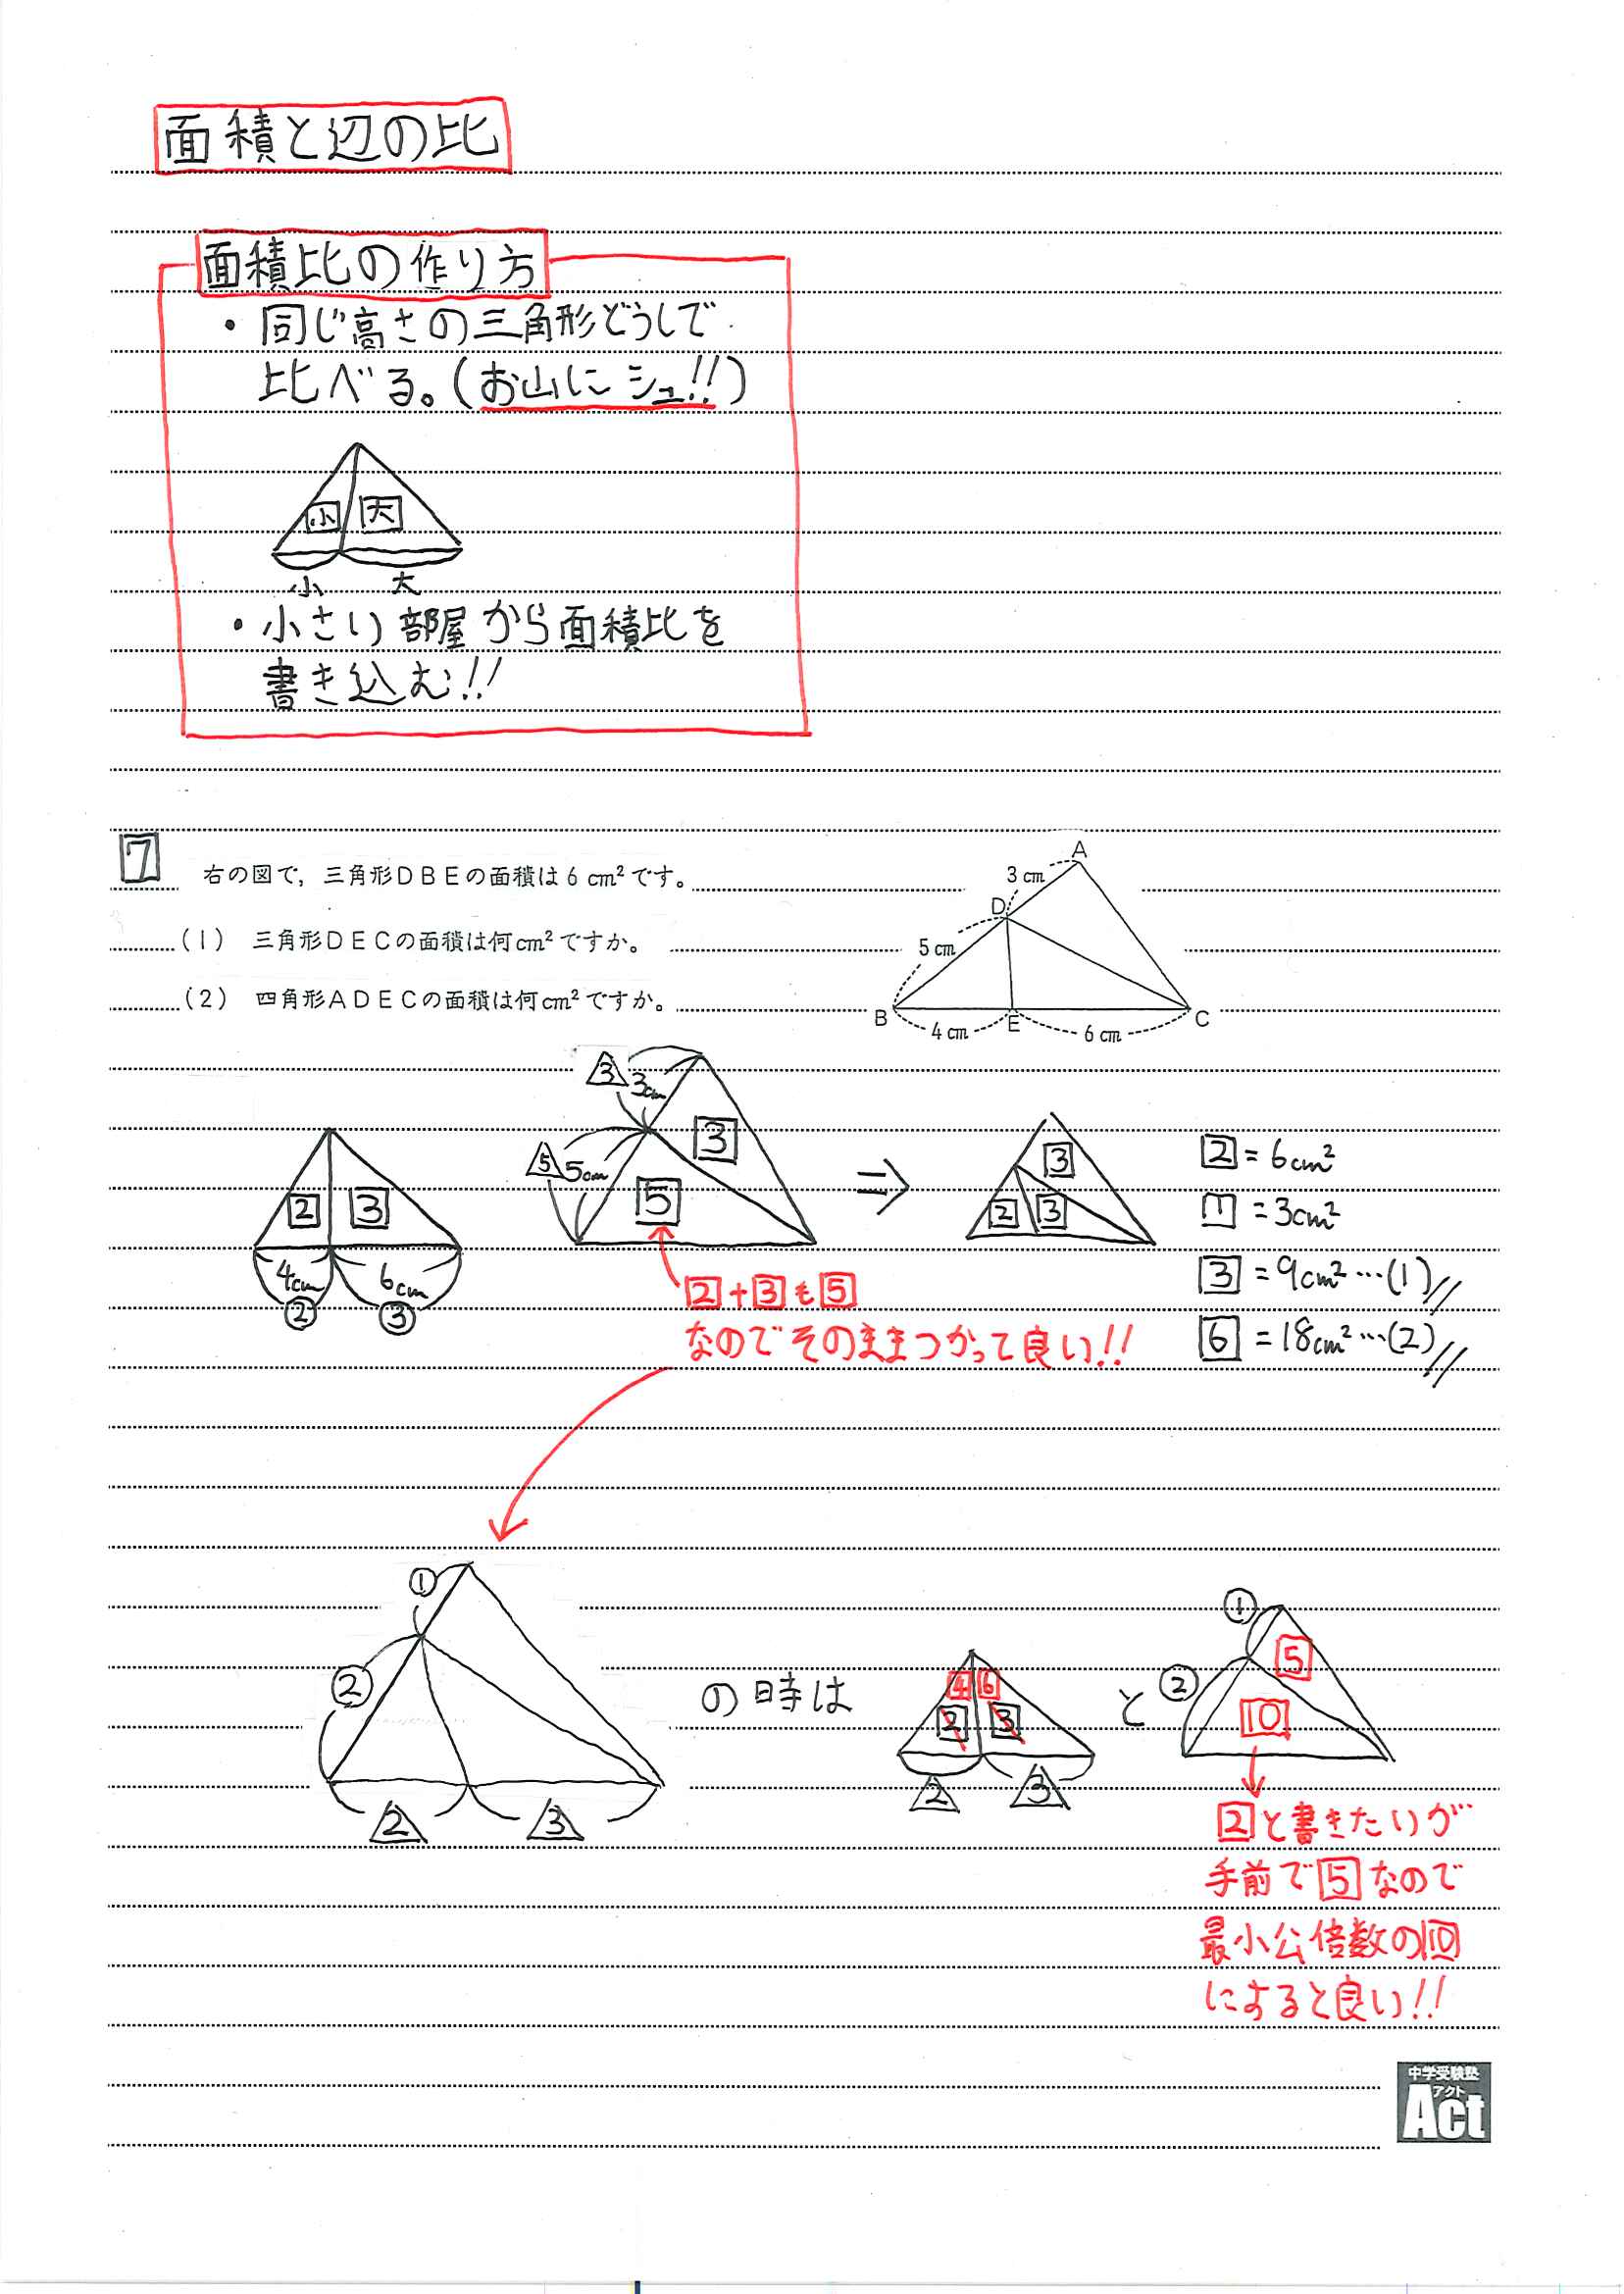 面積と辺の比
面積比の作り方
・同じ高さの三角形どうしで
比べる。(お山にシュ!!)
小 大
小 大
・小さい部屋から面積比を
書き込む!!
7 右の図で，三角形DBEの面積は6cm²です。
(1) 三角形DECの面積は何cm²ですか。
(2) 四角形ADECの面積は何cm²ですか。
A
3cm
D
5cm
B E C
4cm 6cm
2 3
4cm 6cm
② ③
3 3cm
3
5 5cm
5
⇒
3
2 3
2 = 6cm²
1 = 3cm²
3 = 9cm² …(1)
6 = 18cm² …(2)
2+3も5
なのでそのままつかって良い!!
①
②
2 3
の時は
4 6
2 3
2 3
と
①
②
5
10
2と書きたいが
手前で5なので
最小公倍数の10
にすると良い!!
中学受験塾
アクト
Act